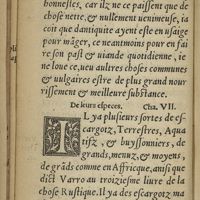 honnestes, car ilz ne ce paissent que de
chose nette, & nullement uenimeuse, ia
coit que dantiquite ayent este en usaige
pour māger, ce neantmoins pour en fai
re son past & uiande quotidienne, ie
ne loue ce, ueu aultres choses communes
& uulgaires estre de plus grand nour
rissement & meilleure substāce.
De leurs especes. Cha. VII.
IL ya plusieurs sortes de es-
cargotz, Terrestres, Aqua
tisz, & buyssonniers, de
grands, menuz, & moyens,
de grāds comme en Affricque, ansi que
dict Varro au troiziesme liure de la
chose Rustique. Il ya des escargotz ma